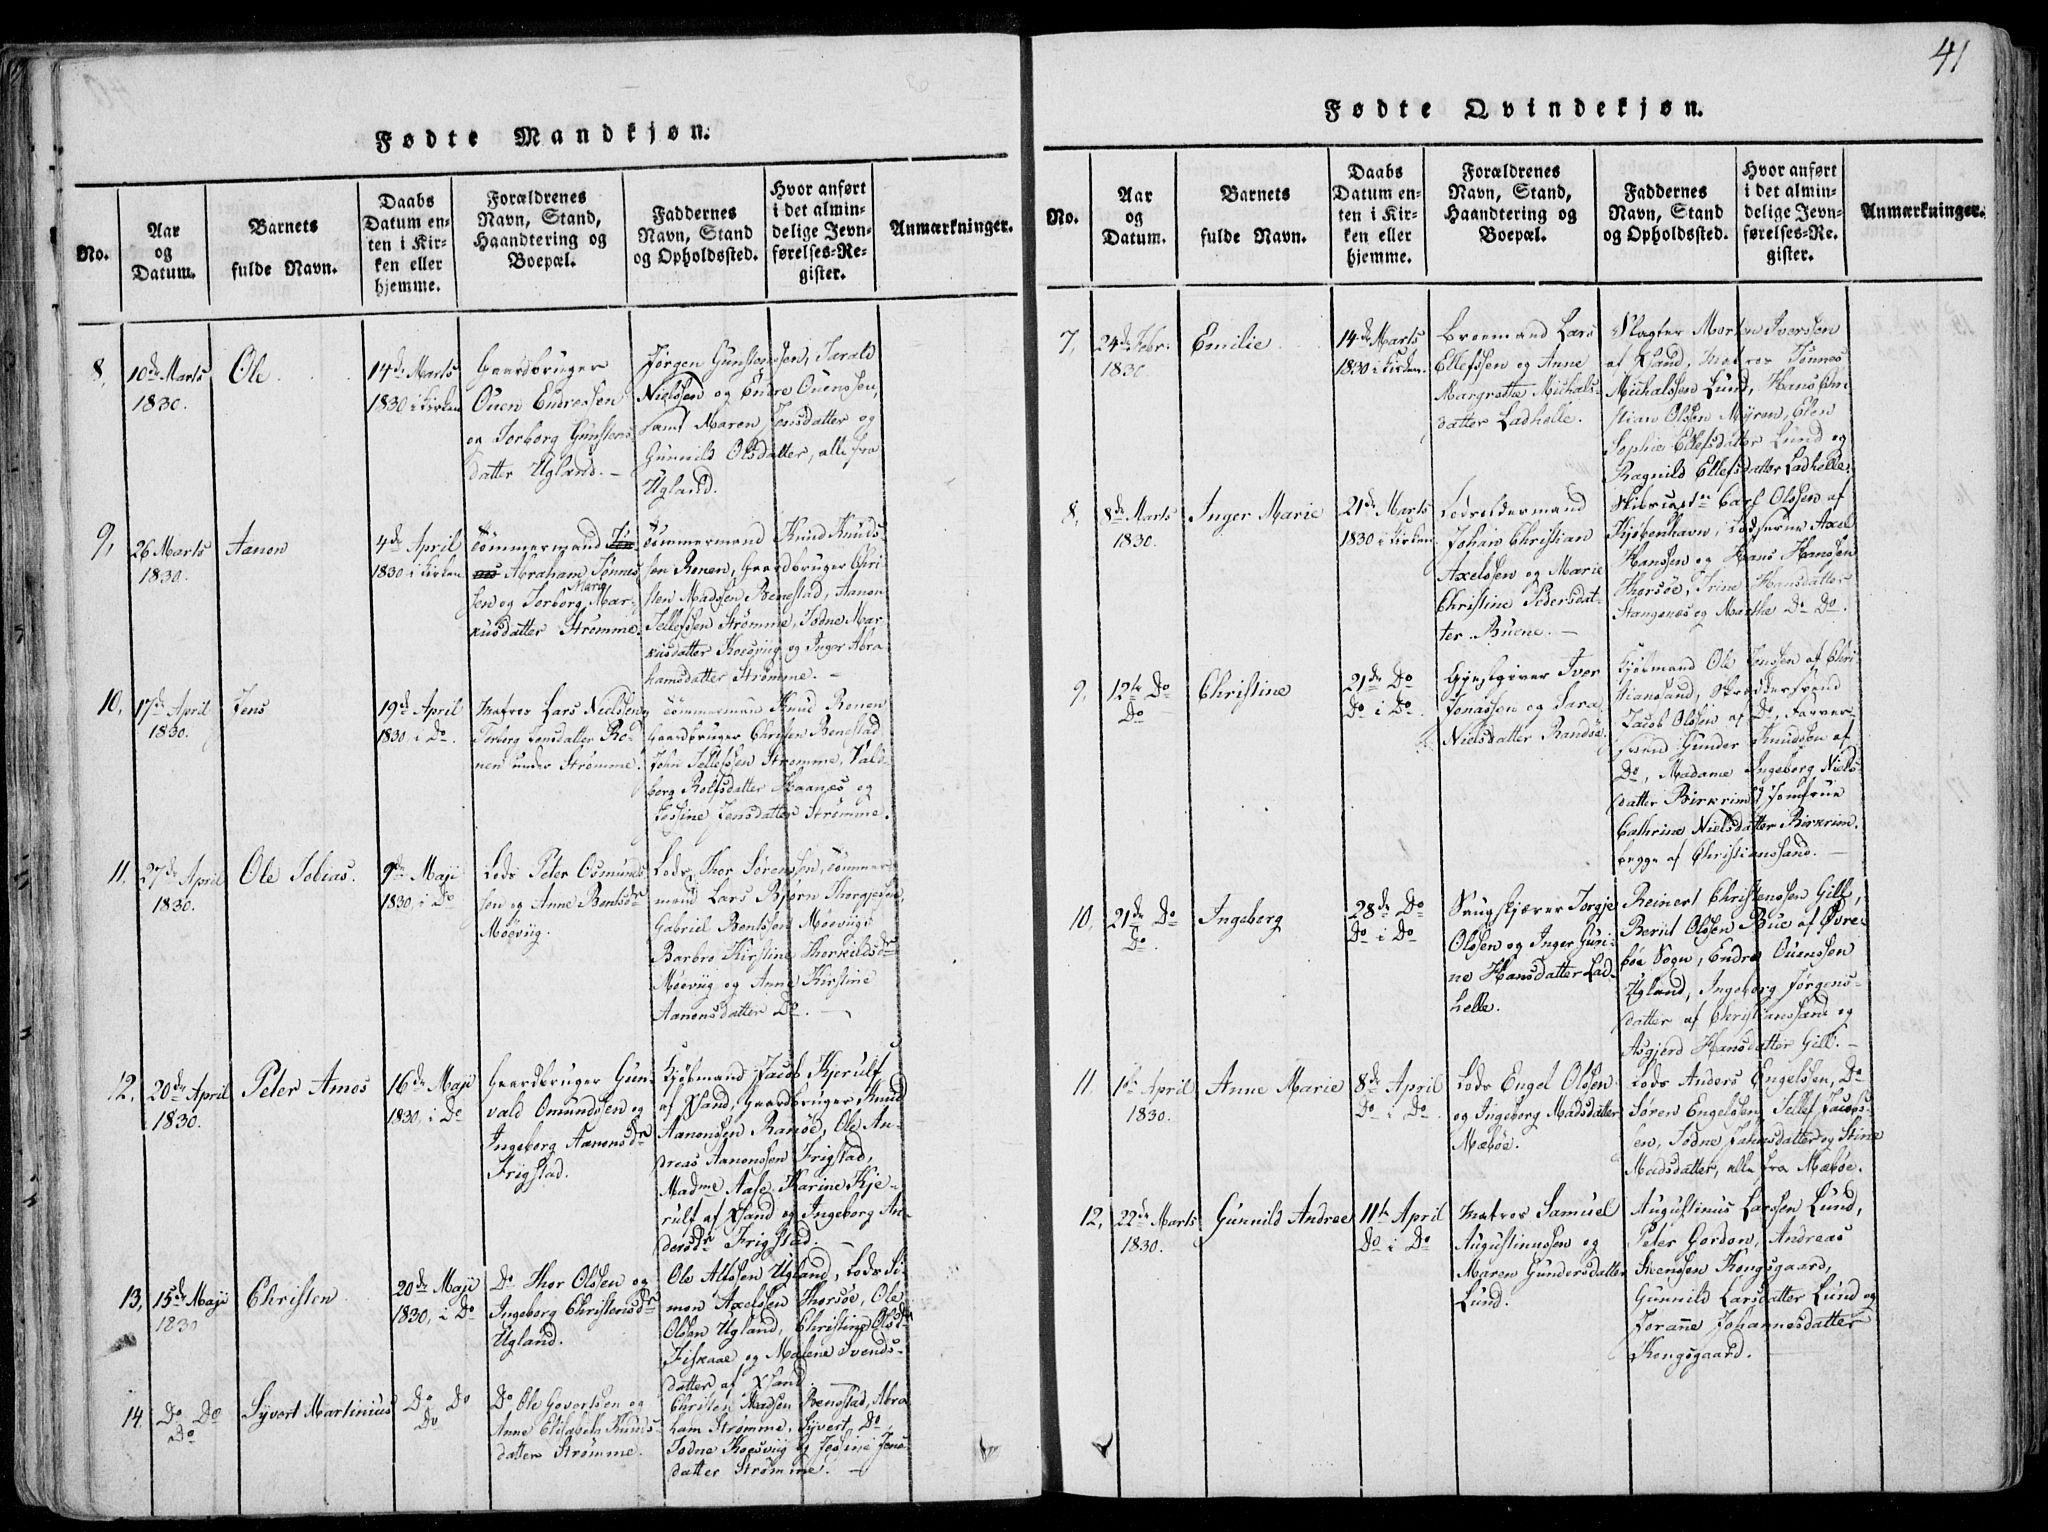 Fødte Mandkjøn.
No.
Aar
og
Datum.
Barnets
fulde Navn.
Daabs
Datum en-
ten i Kir-
ken eller
hjemme.
Forældrenes
Navn, Stand,
Haandtering og
Boepæl.
Faddernes
Navn, Stand
og Opholdssted.
Hvor anført
i det almin-
delige Jevn-
førelses-Re-
gister.
Anmærkninger.
8,
10de Marts
1830.
Ole
14de Marts
1830 i Kirken
Gaardbruger
Ouen Endressen
og Torborg Gunstens-
datter Ugland. —
Jørgen Gunstensen, Tarald
Nielssen og Endre Ouenssen,
samt Maren Jensdatter og
Gunnild Olsdatter, alle fra
Ugland.
9,
26 Marts
1830.
Aanon
4de April
1830 i Kirken
Tømmermand
Abraham Tønnes-
sen og Torborg Marg Mar-
kusdatter Strømme.
Tømmermand Knud Knuds-
sen Ronen, Gaardbruger Chri-
sten Madssen Benestad, Aanon
Tellefssen Strømme, Todne Mar-
kusdatter Kosviig og Inger Abra-
hamsdatter Strømme. —
10,
17de April
1830.
Jens
19de April
1830, i Do
Matros Lars Nielssen og
Torborg Jensdatter Ro-
nen under Strømme.
Tømmerman Knud Ronen
Gaardbruger Christen Benestad
John Tellefssen Strømme, Vald-
borg Rolfsdatter Haanes og
Jesine Jensdatter Strømme.
11.
27de April
1830.
Ole Tobias.
9de Maji
1830, i Do
Lods Peter Osmunds-
sen og Anne Bentsdr
Møeviig.
Lods Thor Sørenssen, Tømmer-
mand Lars Bjørn Thorgjesen,
Gabriel Bentssen Møeviig
Barbro Kirstine Thorkildsdr
Møeviig og Anne Kirstine
Aanonsdatter Do. —
12.
20de April
1830.
Peter Amos
16de Maji
1830, i Do
Gaardbruger Gun-
vald Omundssen og
Ingeborg Aanonsdr
Frigstad.
Kjøbmand Jacob Kjerulf
af Xsand, Gaardbruger Knud
Aanonssen Ranøe, Ole An-
dreas Aanonssen Frigstad,
Madme Aase Karine Kje-
rulf af Xsand og Ingeborg An-
dersdr Frigstad.
13,
15de Maji
1830
Christen
20de Maji
1830, i Do
Do Thor Olssen og
Ingeborg Christensdr
Ugland.
Ole Alfssen Ugland, Lods Si-
mon Axelssen Thorsøe, Ole
Olssen Ugland, Christine Olsdr
Fiskaae og Malene Svends-
datter af Xsand. —
14
Do Do
Do
Syvert Martinius
Do Do
Do
Do Ole Govertsen og
Anne Elisabeth Knuds-
datter Strømme.
Christen Madsen Benestad, Abra
ham Strømme, Syvert Do
Todne Koesviig og Jesine Jens-
datter Strømme. —
41
Fødte Qvindekjøn.
No.
Aar
og
Datum.
Barnets
fulde Navn.
Daabs
Datum en-
ten i Kir-
ken eller
hjemme.
Forældrenes
Navn, Stand,
Haandtering og
Boepæl.
Faddernes
Navn, Stand
og Opholdssted.
Hvor anført
i det almin-
delige Jevn-
førelses-Re-
gister.
Anmærkninger.
7,
24de Febr.
1830
Emilie
14de Marts
1830 i Kirken.
Broemand Lars
Ellefssen og Anne
Margrethe Michals-
datter Ladhelle.
Slagter Morten Iverssen
af Xsand, Matros Tønnes
Michalssen Lund, Hans Chri-
stian Olssen Myren, Elen
Sophie Ellefsdatter Lund og
Ragnild Ellefsdatter Ladhelle.
8,
8de Marts
1830.
Inger Marie
21de Marts
1830 i Kirken.
Lodsoldermand
Johan Christian
Axelssen og Marie
Christine Pedersdat-
ter Buene. —
Carl Olssen af
Kjøbenhavn, Lodserne Axel
Hanssen og Hans Hanssen
Thorsøe, Trine Hansdatter
Stangenes og Marthe Do Do.
9,
12te Do
Do
Christine
21de Do
Do i Do
Gjestgiver Iver
Jonassen og Sara
Nielsdatter Randøe.
Kjøbmand Ole Jenssen af Chri-
stianssand, Skræddersvend
Jacob Olssen af Do, Farver-
svend Gunder Knudssen af
Do, Madame Ingeborg Niels-
datter Birkrim, Jomfrue
Cathrine Nielsdatter Birkrim.
begge af Christianssand. —
10,
21de Do
Do.
Ingeborg
28de Do
Do i Do
Saugskjærer Torgje
Olssen og Inger Guri-
ne Hansdatter Lad-
helle.
Reinert Christenssen Gill,
Berul Olssen Bue af Øvre-
bøe Sogn, Endre Ouenssen
Ugland, Ingeborg Jørgens-
datter af Christianssand og
Asgjerd Hansdatter Gill. —
11.
1ste April
1830.
Anne Marie
8de April
Do i Do.
Lods Engel Olssen
og Ingeborg Madsdatter
Mæbøe.
Lods Anders Engelssen, Do
Søren Engelssen, Tellef Jacobs-
en, Todne Jahnsdatter og Stine
Madsdatter, alle fra Mæbøe.
12,
22de Marts
1830.
Gunnild Andree
11te April
Do i Do
Matros Samuel
Augustinussen og
Maren Gundersdatter
Lund.
Augustinus Larssen Lund,
Peter Gordon, Andreas
Svenssen Kongsgaard,
Gunnild Larsdatter Lund og
Joranne Johannesdatter
Kongsgaard.